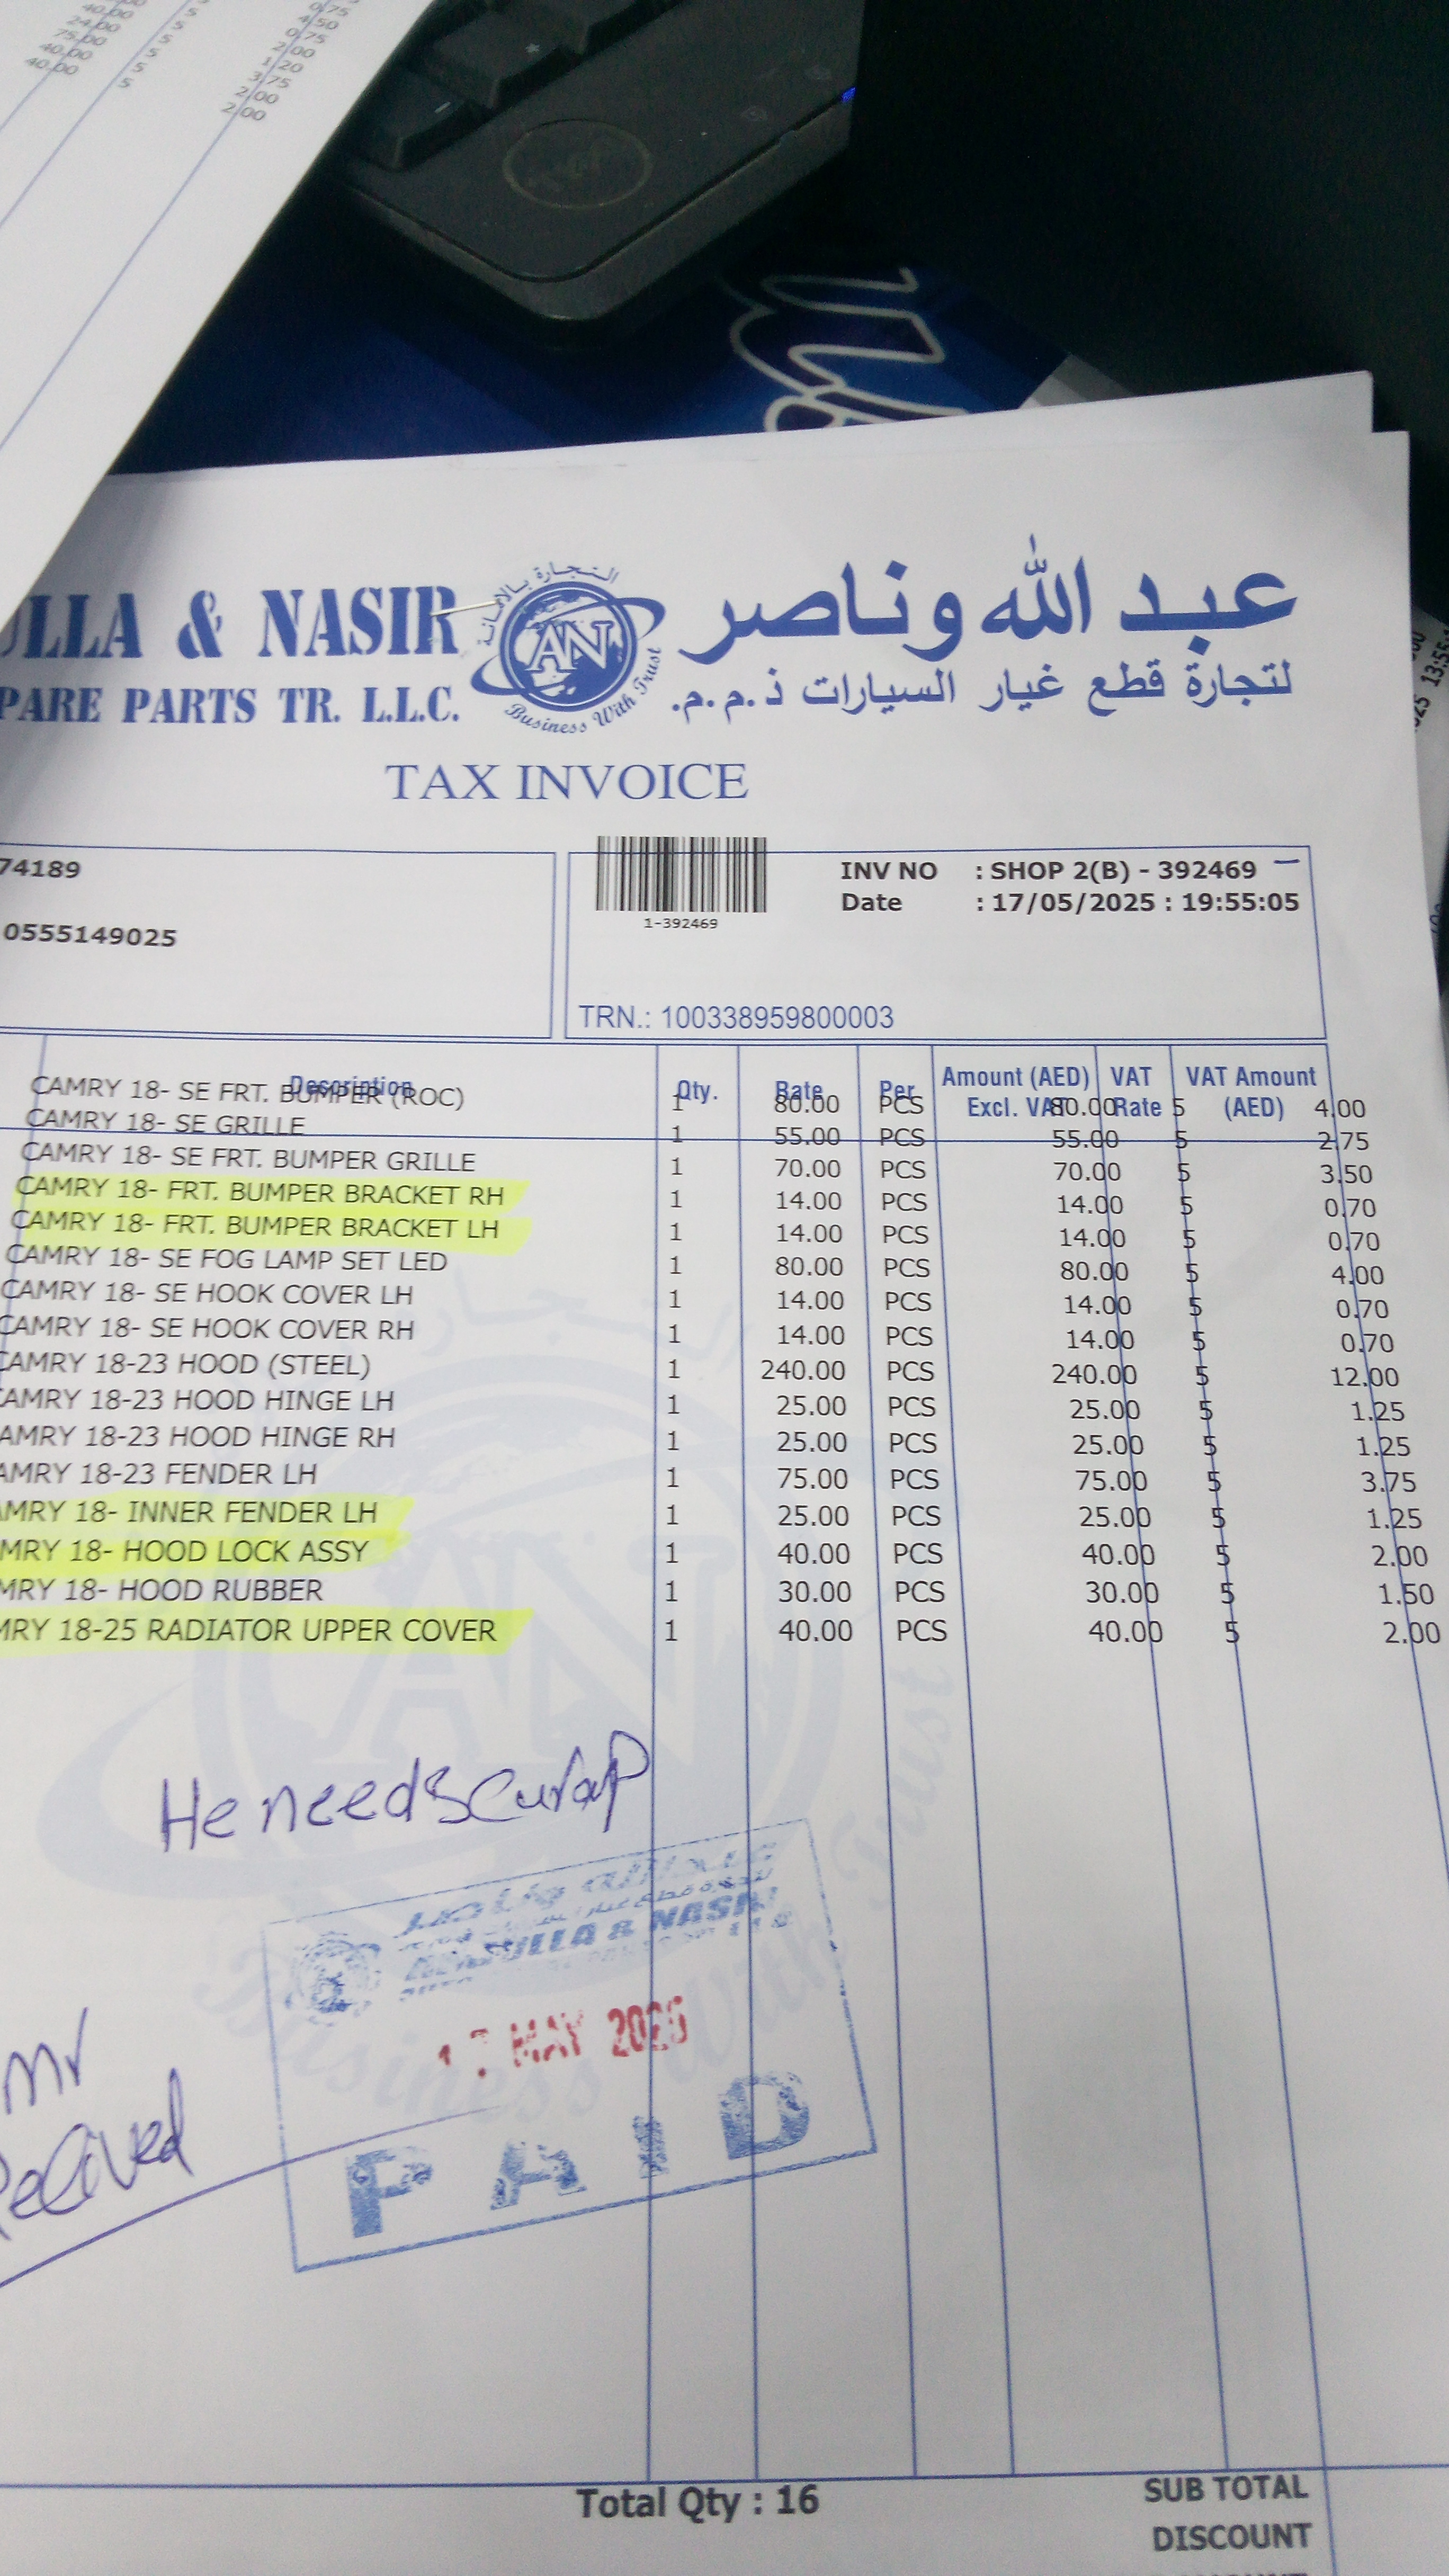 40.00 5 0.75
24.00 5 4.50
75.00 5 0.75
40.00 5 2.00
40.00 5 1.20
3.75
2.00
2.00
ULLA & NASIR
PARE PARTS TR. L.L.C.
التجارة بالامانة
AN
Business With Trust
عبد الله وناصر
لتجارة قطع غيار السيارات ذ.م.م.
TAX INVOICE
74189
0555149025
1-392469
INV NO : SHOP 2(B) - 392469
Date : 17/05/2025 : 19:55:05
TRN.: 100338959800003
Description Qty. Rate Per Amount (AED) Excl. VAT VAT Rate VAT Amount (AED)
CAMRY 18- SE FRT. BUMPER (ROC) 1 80.00 PCS 80.00 5 4.00
CAMRY 18- SE GRILLE 1 55.00 PCS 55.00 5 2.75
CAMRY 18- SE FRT. BUMPER GRILLE 1 70.00 PCS 70.00 5 3.50
CAMRY 18- FRT. BUMPER BRACKET RH 1 14.00 PCS 14.00 5 0.70
CAMRY 18- FRT. BUMPER BRACKET LH 1 14.00 PCS 14.00 5 0.70
CAMRY 18- SE FOG LAMP SET LED 1 80.00 PCS 80.00 5 4.00
CAMRY 18- SE HOOK COVER LH 1 14.00 PCS 14.00 5 0.70
CAMRY 18- SE HOOK COVER RH 1 14.00 PCS 14.00 5 0.70
CAMRY 18-23 HOOD (STEEL) 1 240.00 PCS 240.00 5 12.00
CAMRY 18-23 HOOD HINGE LH 1 25.00 PCS 25.00 5 1.25
AMRY 18-23 HOOD HINGE RH 1 25.00 PCS 25.00 5 1.25
AMRY 18-23 FENDER LH 1 75.00 PCS 75.00 5 3.75
MRY 18- INNER FENDER LH 1 25.00 PCS 25.00 5 1.25
MRY 18- HOOD LOCK ASSY 1 40.00 PCS 40.00 5 2.00
MRY 18- HOOD RUBBER 1 30.00 PCS 30.00 5 1.50
MRY 18-25 RADIATOR UPPER COVER 1 40.00 PCS 40.00 5 2.00
He need
عبدالله وناصر
ABDULLA & NASIR
17 MAY 2025
PAID
Total Qty : 16
SUB TOTAL
DISCOUNT